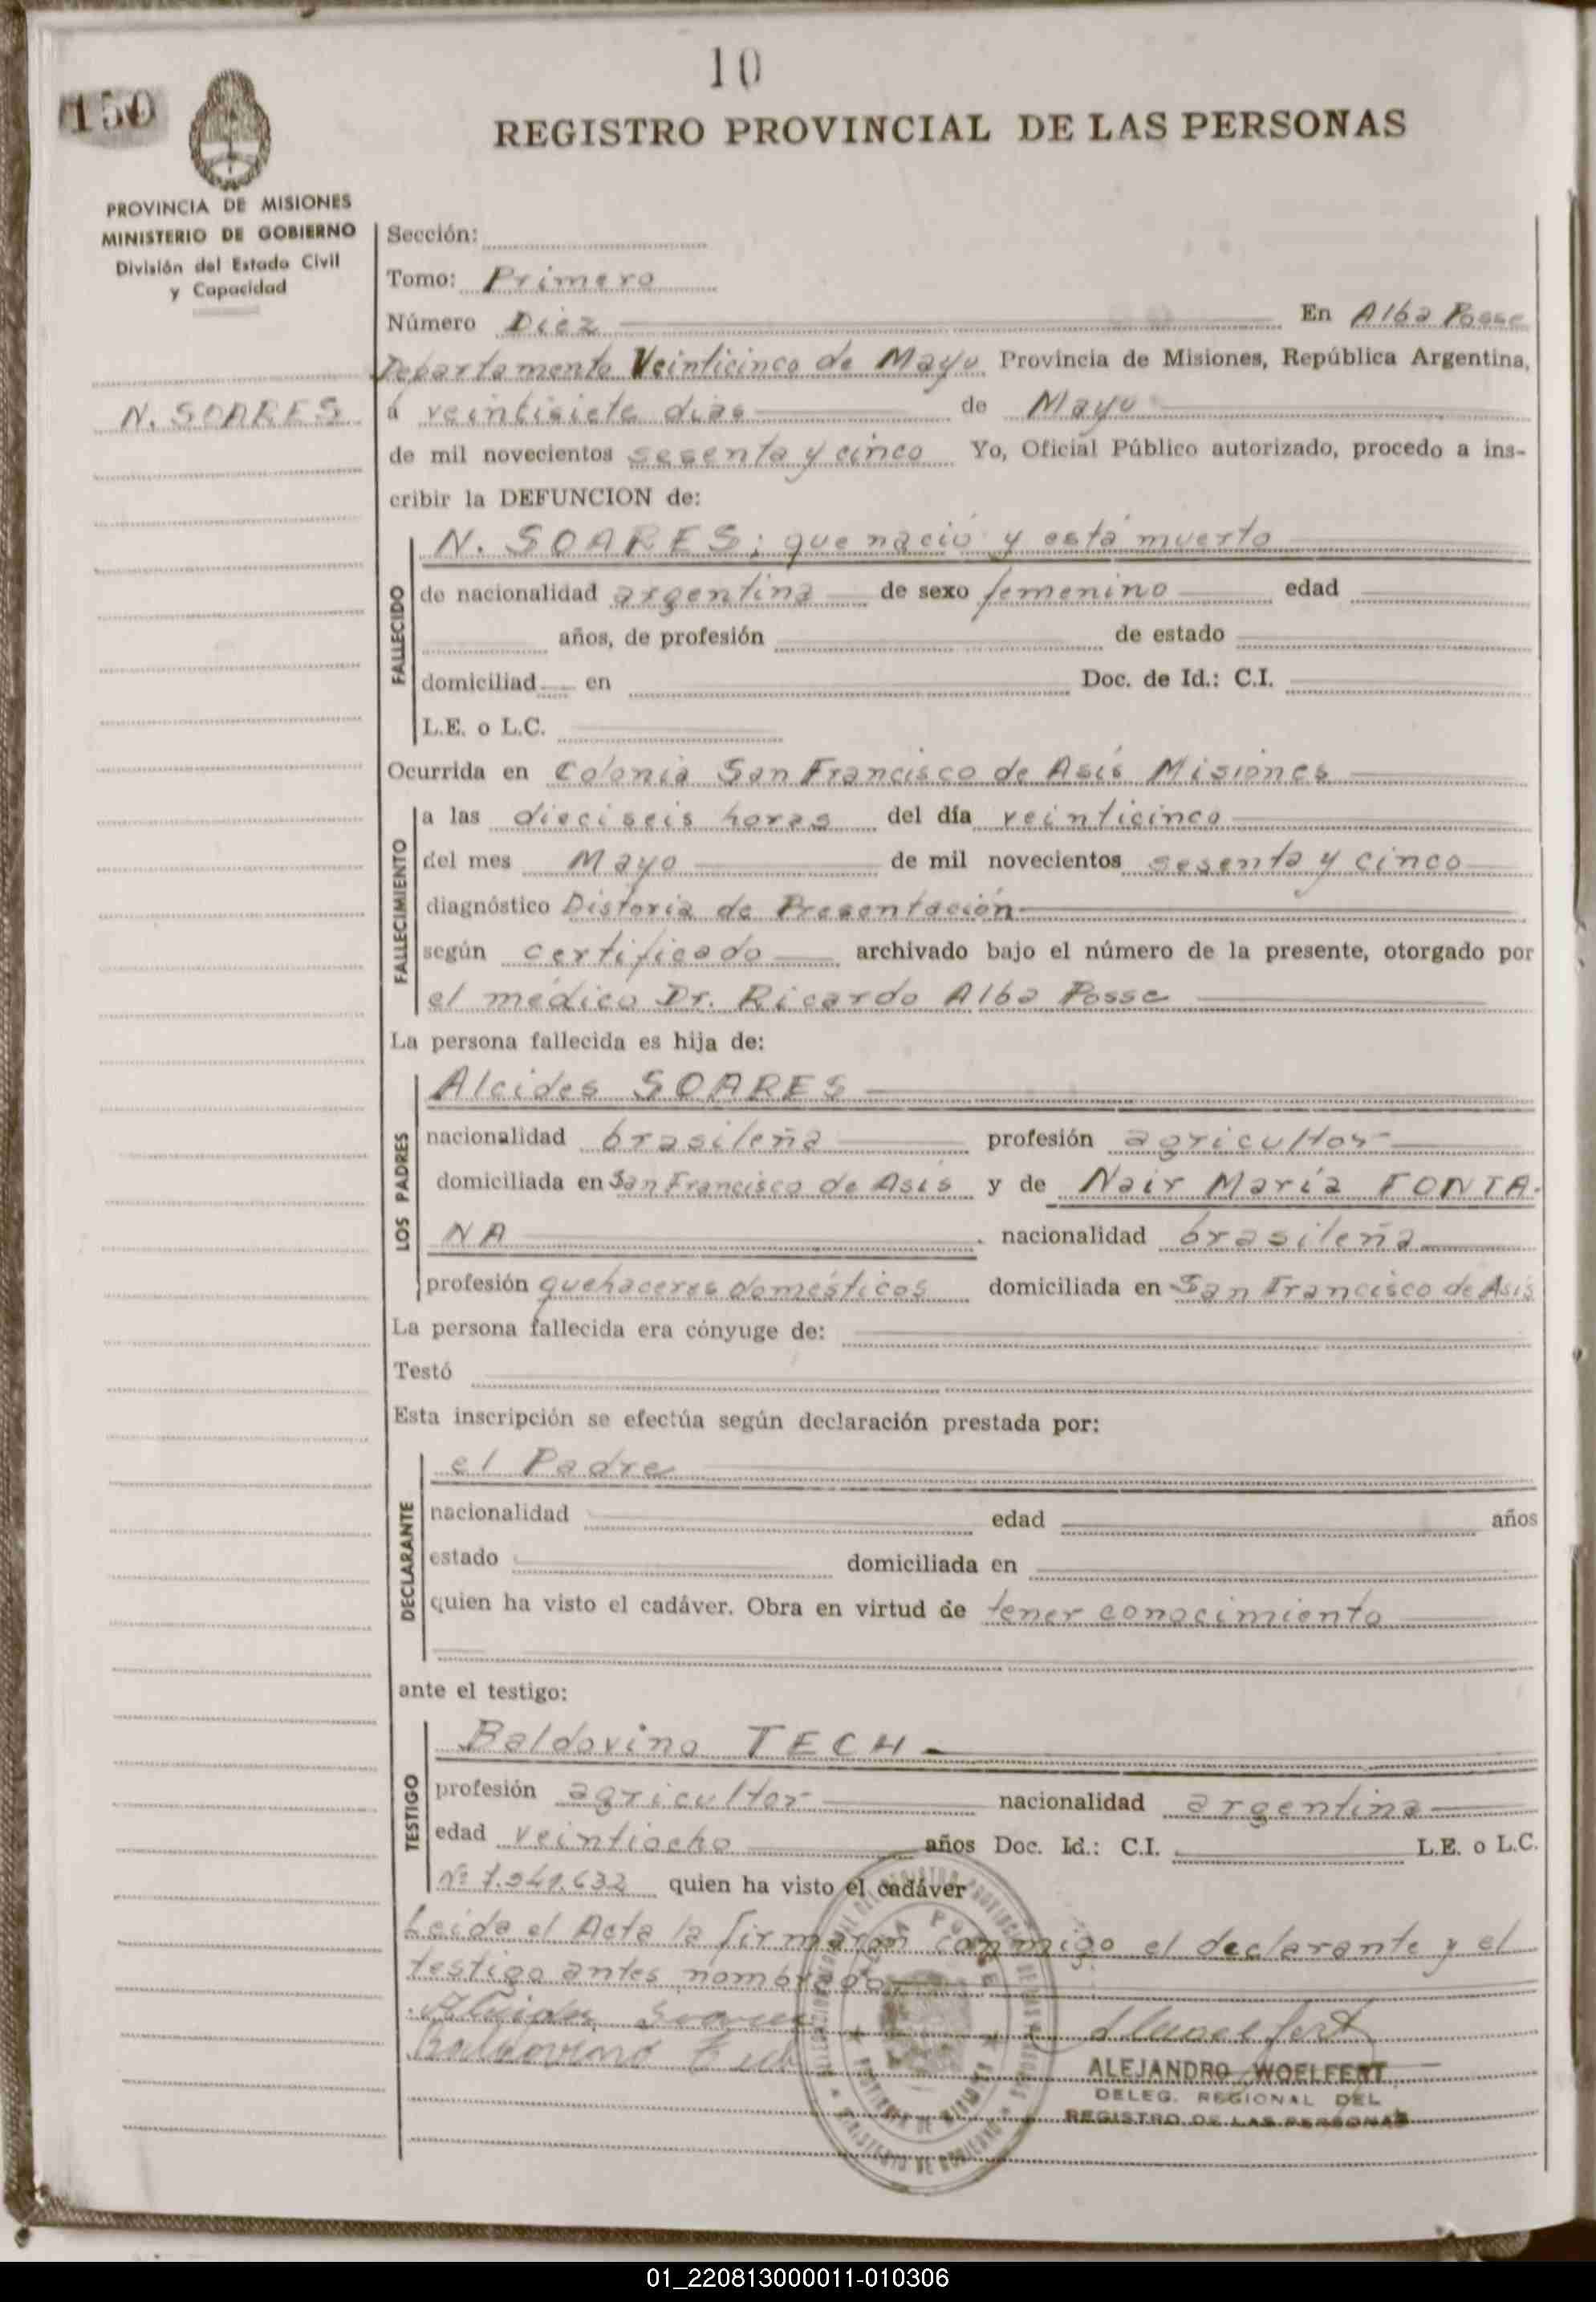 10
150
REGISTRO PROVINCIAL DE LAS PERSONAS
PROVINCIA DE MISIONES
MINISTERIO DE GOBIERNO
División del Estado Civil
y Capacidad
N. SOARES
Sección:
Tomo: Primero
Número Diez En Alba Posse
Departamento Veinticinco de Mayo Provincia de Misiones, República Argentina,
a veintisiete dias de Mayo
de mil novecientos sesenta y cinco Yo, Oficial Público autorizado, procedo a ins-
cribir la DEFUNCION de:
FALLECIDO
N. SOARES; que nació y está muerta
de nacionalidad argentina de sexo femenino edad
años, de profesión de estado
domiciliad en Doc. de Id.: C.I.
L.E. o L.C.
Ocurrida en Colonia San Francisco de Asís Misiones
FALLECIMIENTO
a las dieciseis horas del día veinticinco
del mes Mayo de mil novecientos sesenta y cinco
diagnóstico Distoria de Presentación
según certificado archivado bajo el número de la presente, otorgado por
el médico Dr. Ricardo Alba Posse
La persona fallecida es hija de:
LOS PADRES
Alcides SOARES
nacionalidad brasileña profesión agricultor
domiciliada en San Francisco de Asís y de Nair María FONTA-
NA nacionalidad brasileña
profesión quehaceres domésticos domiciliada en San Francisco de Asís
La persona fallecida era cónyuge de:
Testó
Esta inscripción se efectúa según declaración prestada por:
DECLARANTE
el Padre
nacionalidad edad años
estado domiciliada en
quien ha visto el cadáver. Obra en virtud de tener conocimiento
ante el testigo:
TESTIGO
Baldovino TECH
profesión agricultor nacionalidad argentina
edad veintiocho años Doc. Id.: C.I. L.E. o L.C.
Nº 7.541.632 quien ha visto el cadáver
Leida el Acta la firmaron conmigo el declarante y el
testigo antes nombrado
Alcides Soares
Baldovino
ALEJANDRO WOELFERT
DELEG. REGIONAL DEL
REGISTRO DE LAS PERSONAS
01_220813000011-010306